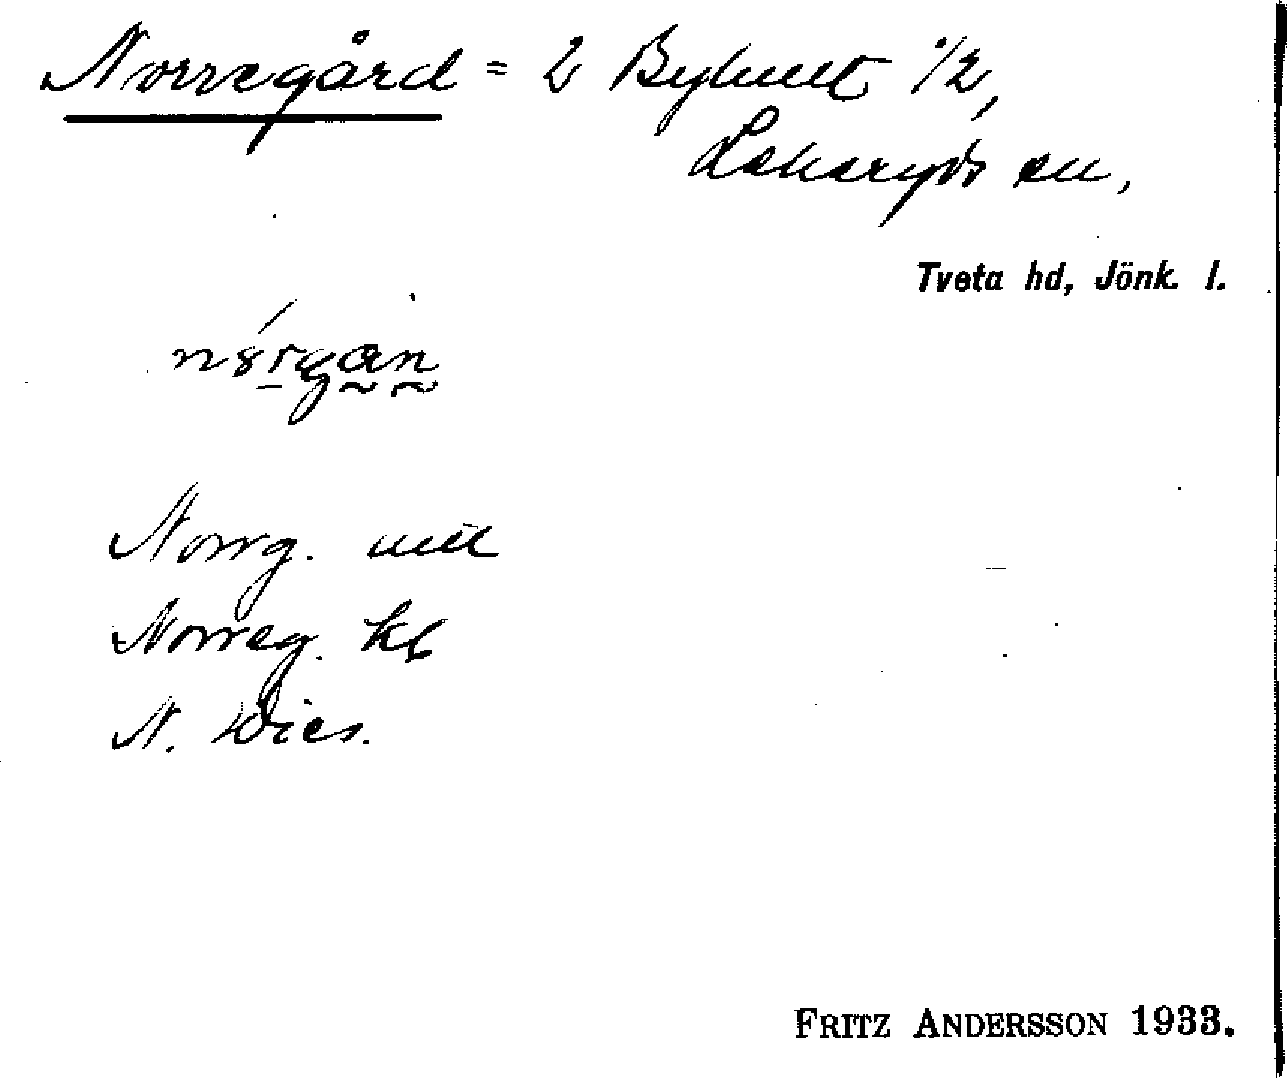 Norregård = 2 Byhult 1/2,
Lekeryds sn,
Tveta hd, Jönk. l.
nǿrgan
Norrg. mtl
Norreg. kb
N. Dies.
FRITZ ANDERSSON 1933.